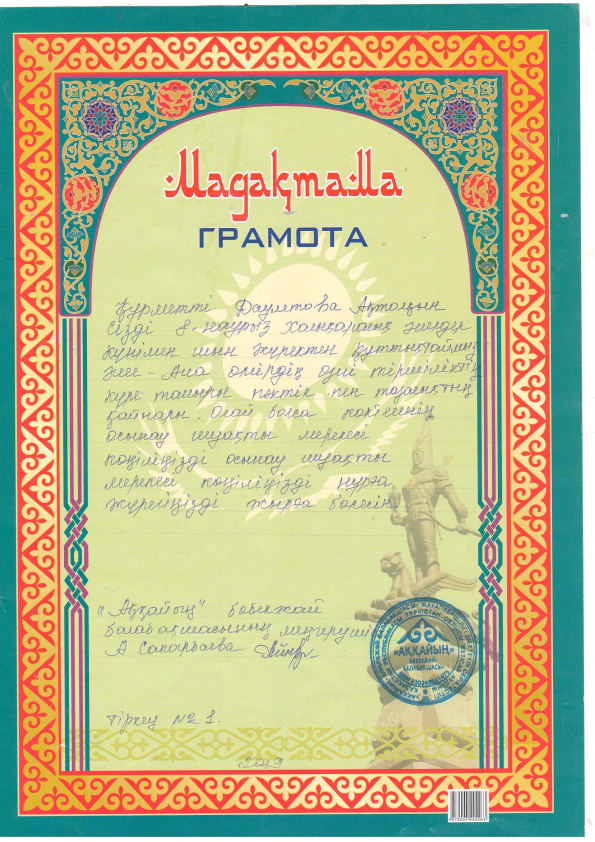 Мадақтама
ГРАМОТА
Құрметті Даулетова Ақтолқын
Сізді 8-наурыз Халықаралық әйелдер
күнімен шын жүректен құттықтаймыз.
Әйел-Ана өмірдің өзі тіршіліктің
күре тамыры пәктік пен тазалықтың
қайнары. Олай болса көктемнің
осынау шуақты мерекесі
көңіліңізді осынау шуақты
мерекесі көңіліңізді нұрға
жүрегіңізді жырға бөлесін
"Аққайың" бөбекжай
балабақшасының меңгерушісі
А Сапарбаева
«АҚҚАЙЫҢ»
БӨБЕКЖАЙ
БАЛАБАҚШАСЫ
Тіркеу №1.
2019